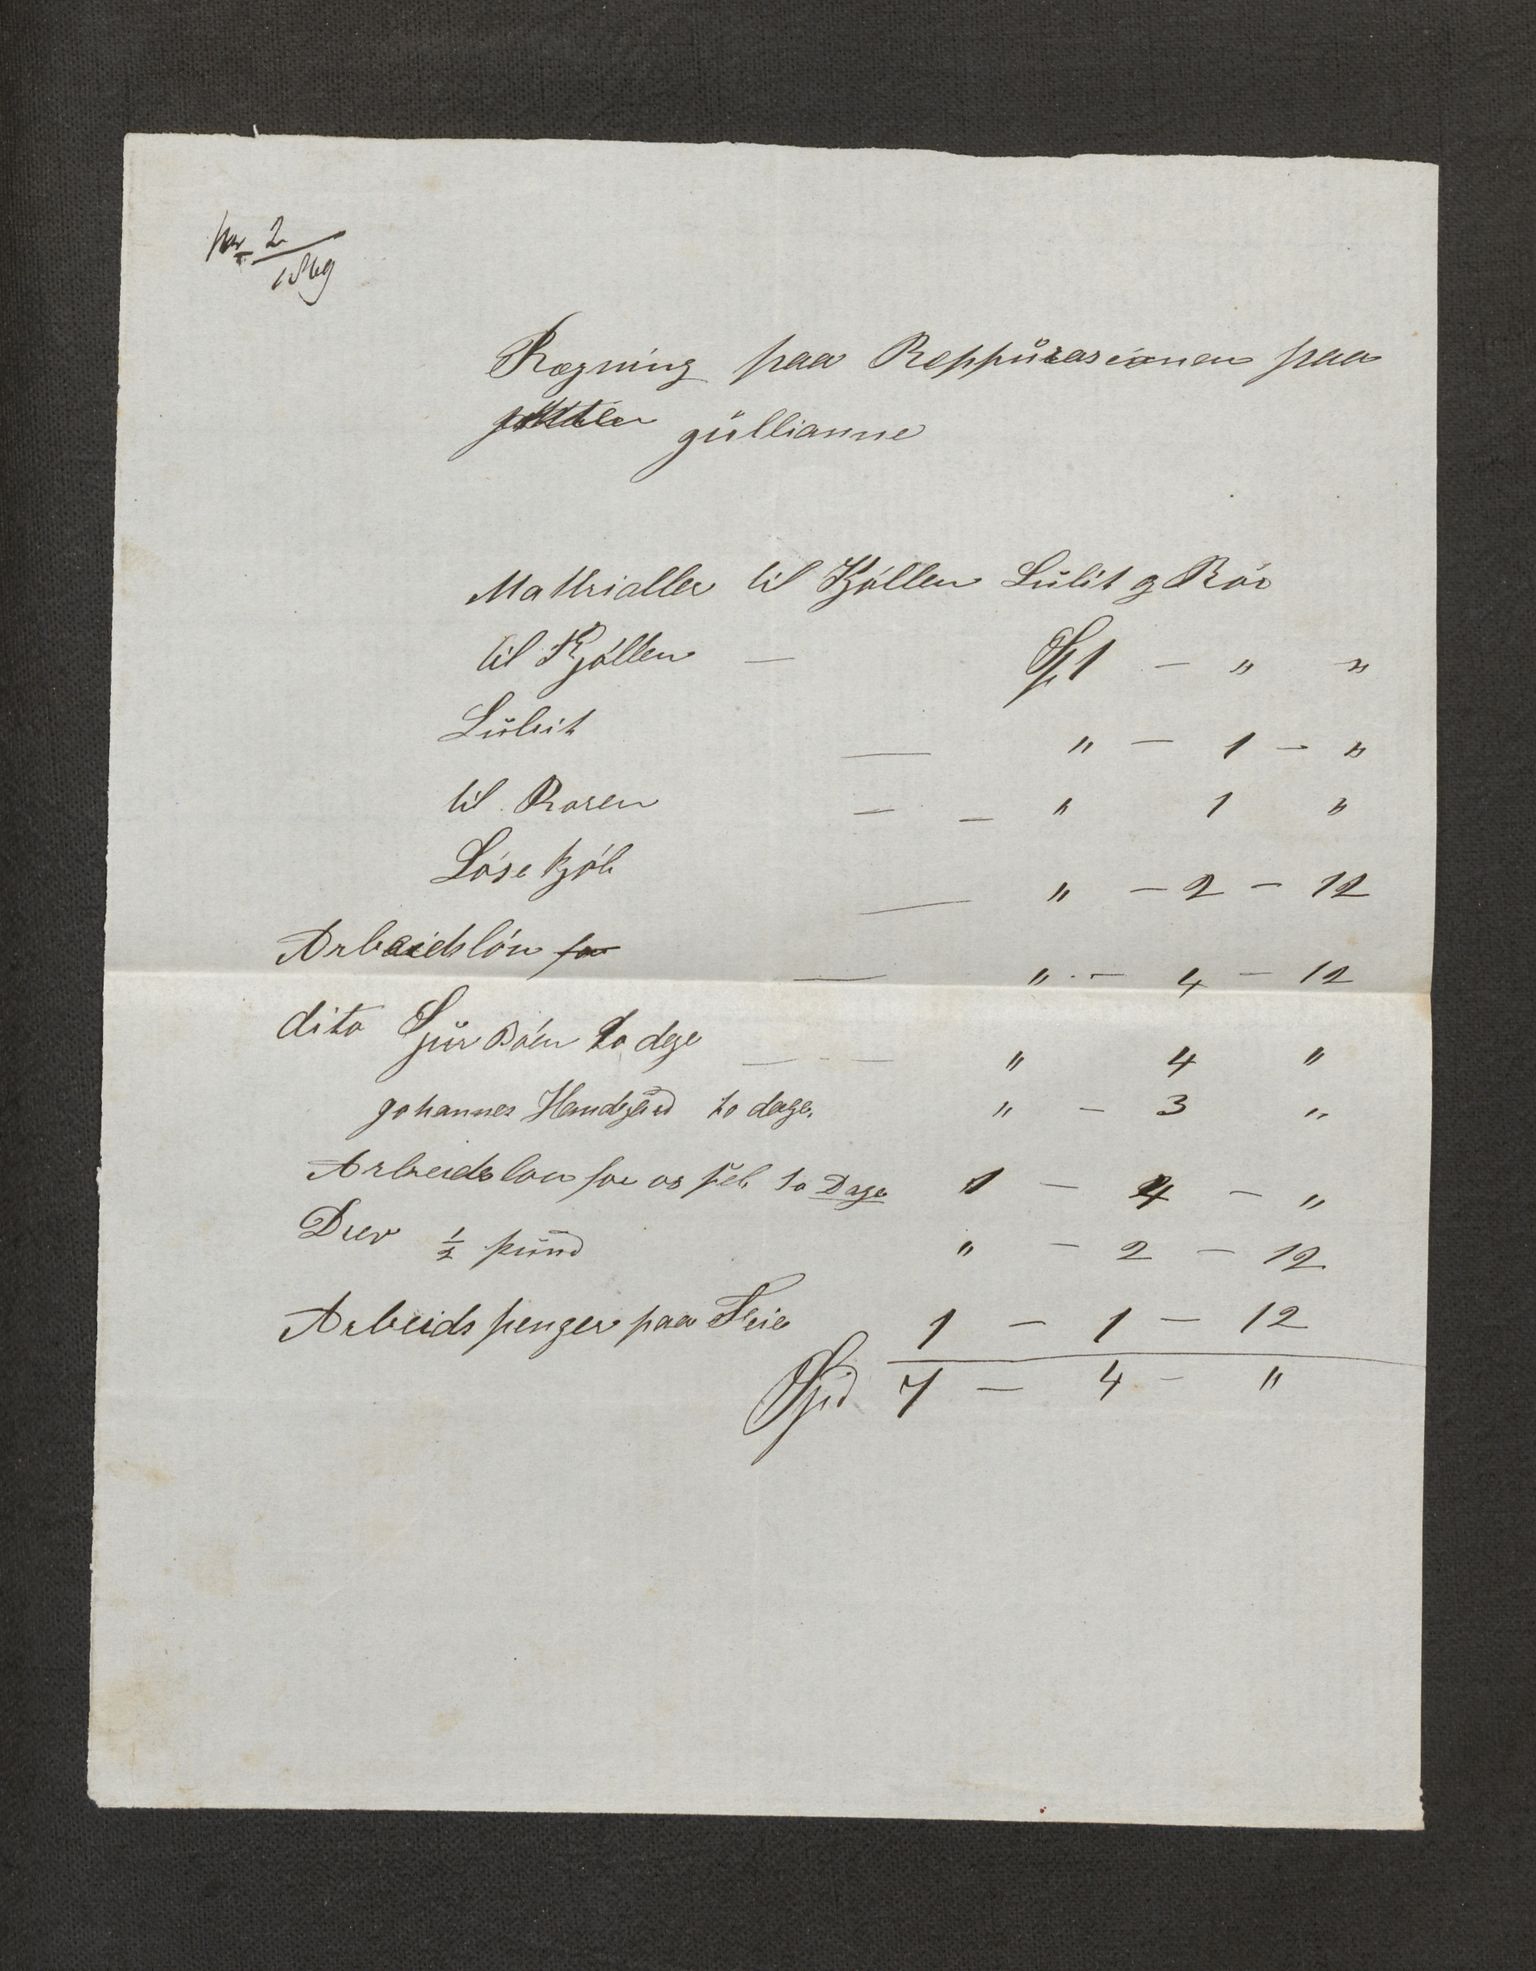 No 2
1869
Rægning paa Reppürasionen paa
güllianne
Mathrialler til Kjöllen Lülit g Rör
til Kjöllen — Sp 1 — " "
Lülit — " — 1 — "
til Roren — — " 1 "
Löse kjöb — " — 2 — 12
Arbeidslön for — " — 4 — 12
dito Sjür Böen to dge — " 4 "
johannes to dage. " — 3 "
Arbeidslon for os sel to Dage 1 — 4 — "
Drev 1/2 pünd " — 2 — 12
Arbeids penger paa 1 — 1 — 12
Spd 7 — 4 — "